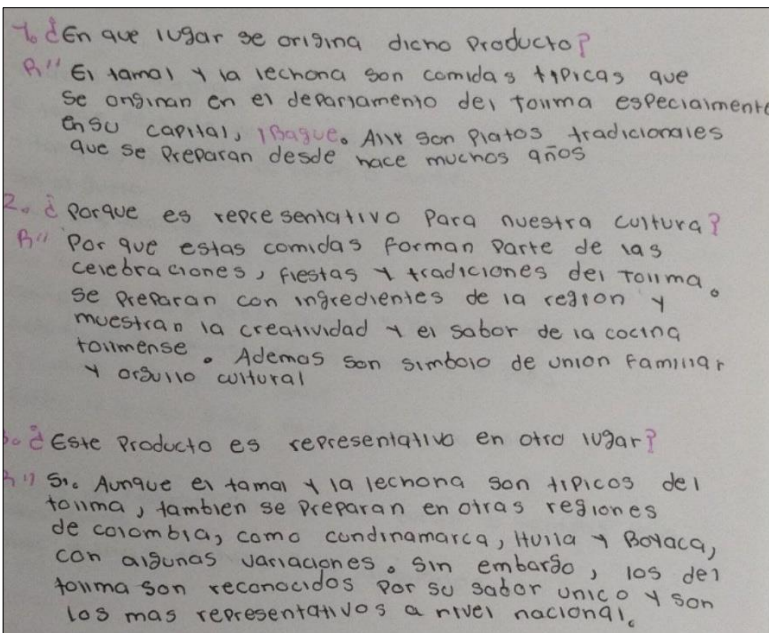 1. ¿En que lugar se origina dicho Producto?
R// El tamal y la lechona son comidas tipicas que
se originan en el departamento del tolima especialmente
en su capital, Ibague. Alli son Platos tradicionales
que se Preparan desde hace muchos años
2. ¿Porque es representativo Para nuestra cultura?
R// Por que estas comidas forman Parte de las
celebraciones, fiestas y tradiciones del Tolima.
se Preparan con ingredientes de la region y
muestran la creatividad y el sabor de la cocina
tolimense. Ademas son simbolo de union Familiar
y orgullo cultural
3. ¿Este Producto es representativo en otro lugar?
R// Si. Aunque el tamal y la lechona son tipicos del
tolima, tambien se Preparan en otras regiones
de colombia, como cundinamarca, Huila y Boyaca,
con algunas variaciones. Sin embargo, los del
tolima son reconocidos Por su sabor unico y son
los mas representativos a nivel nacional.